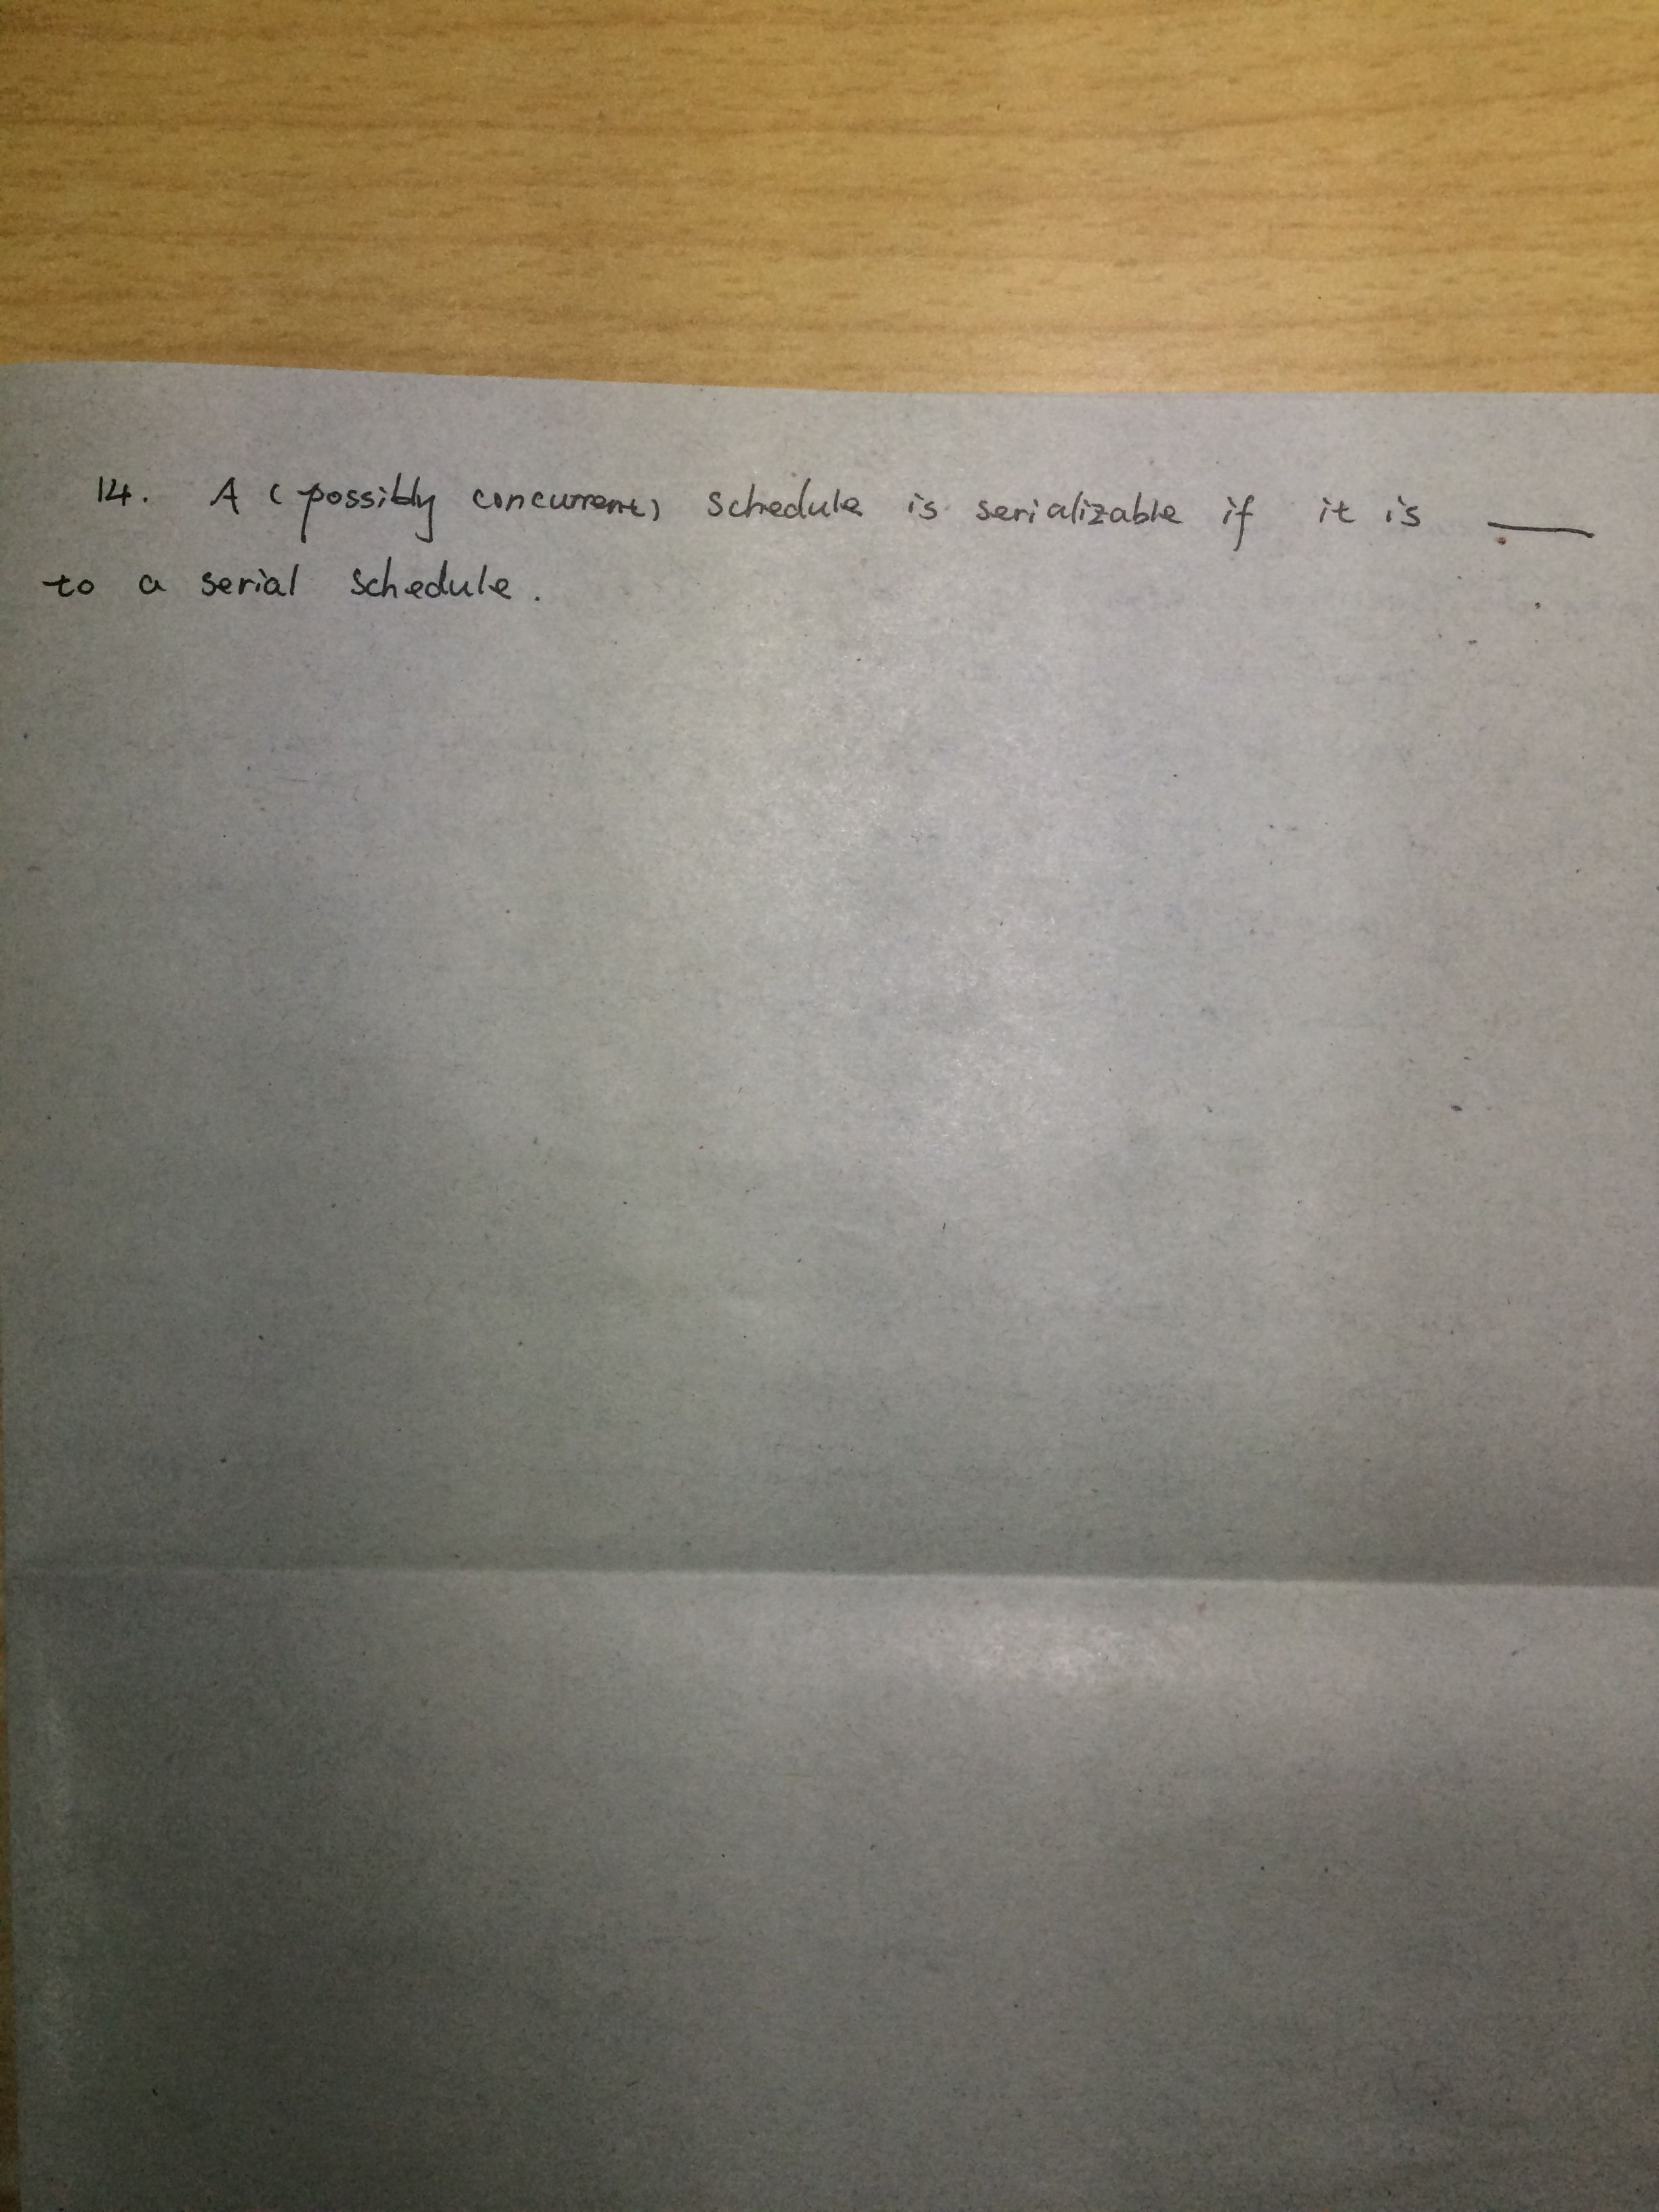 14. A (possibly concurrent) schedule is serializable if it is ___
to a serial schedule.